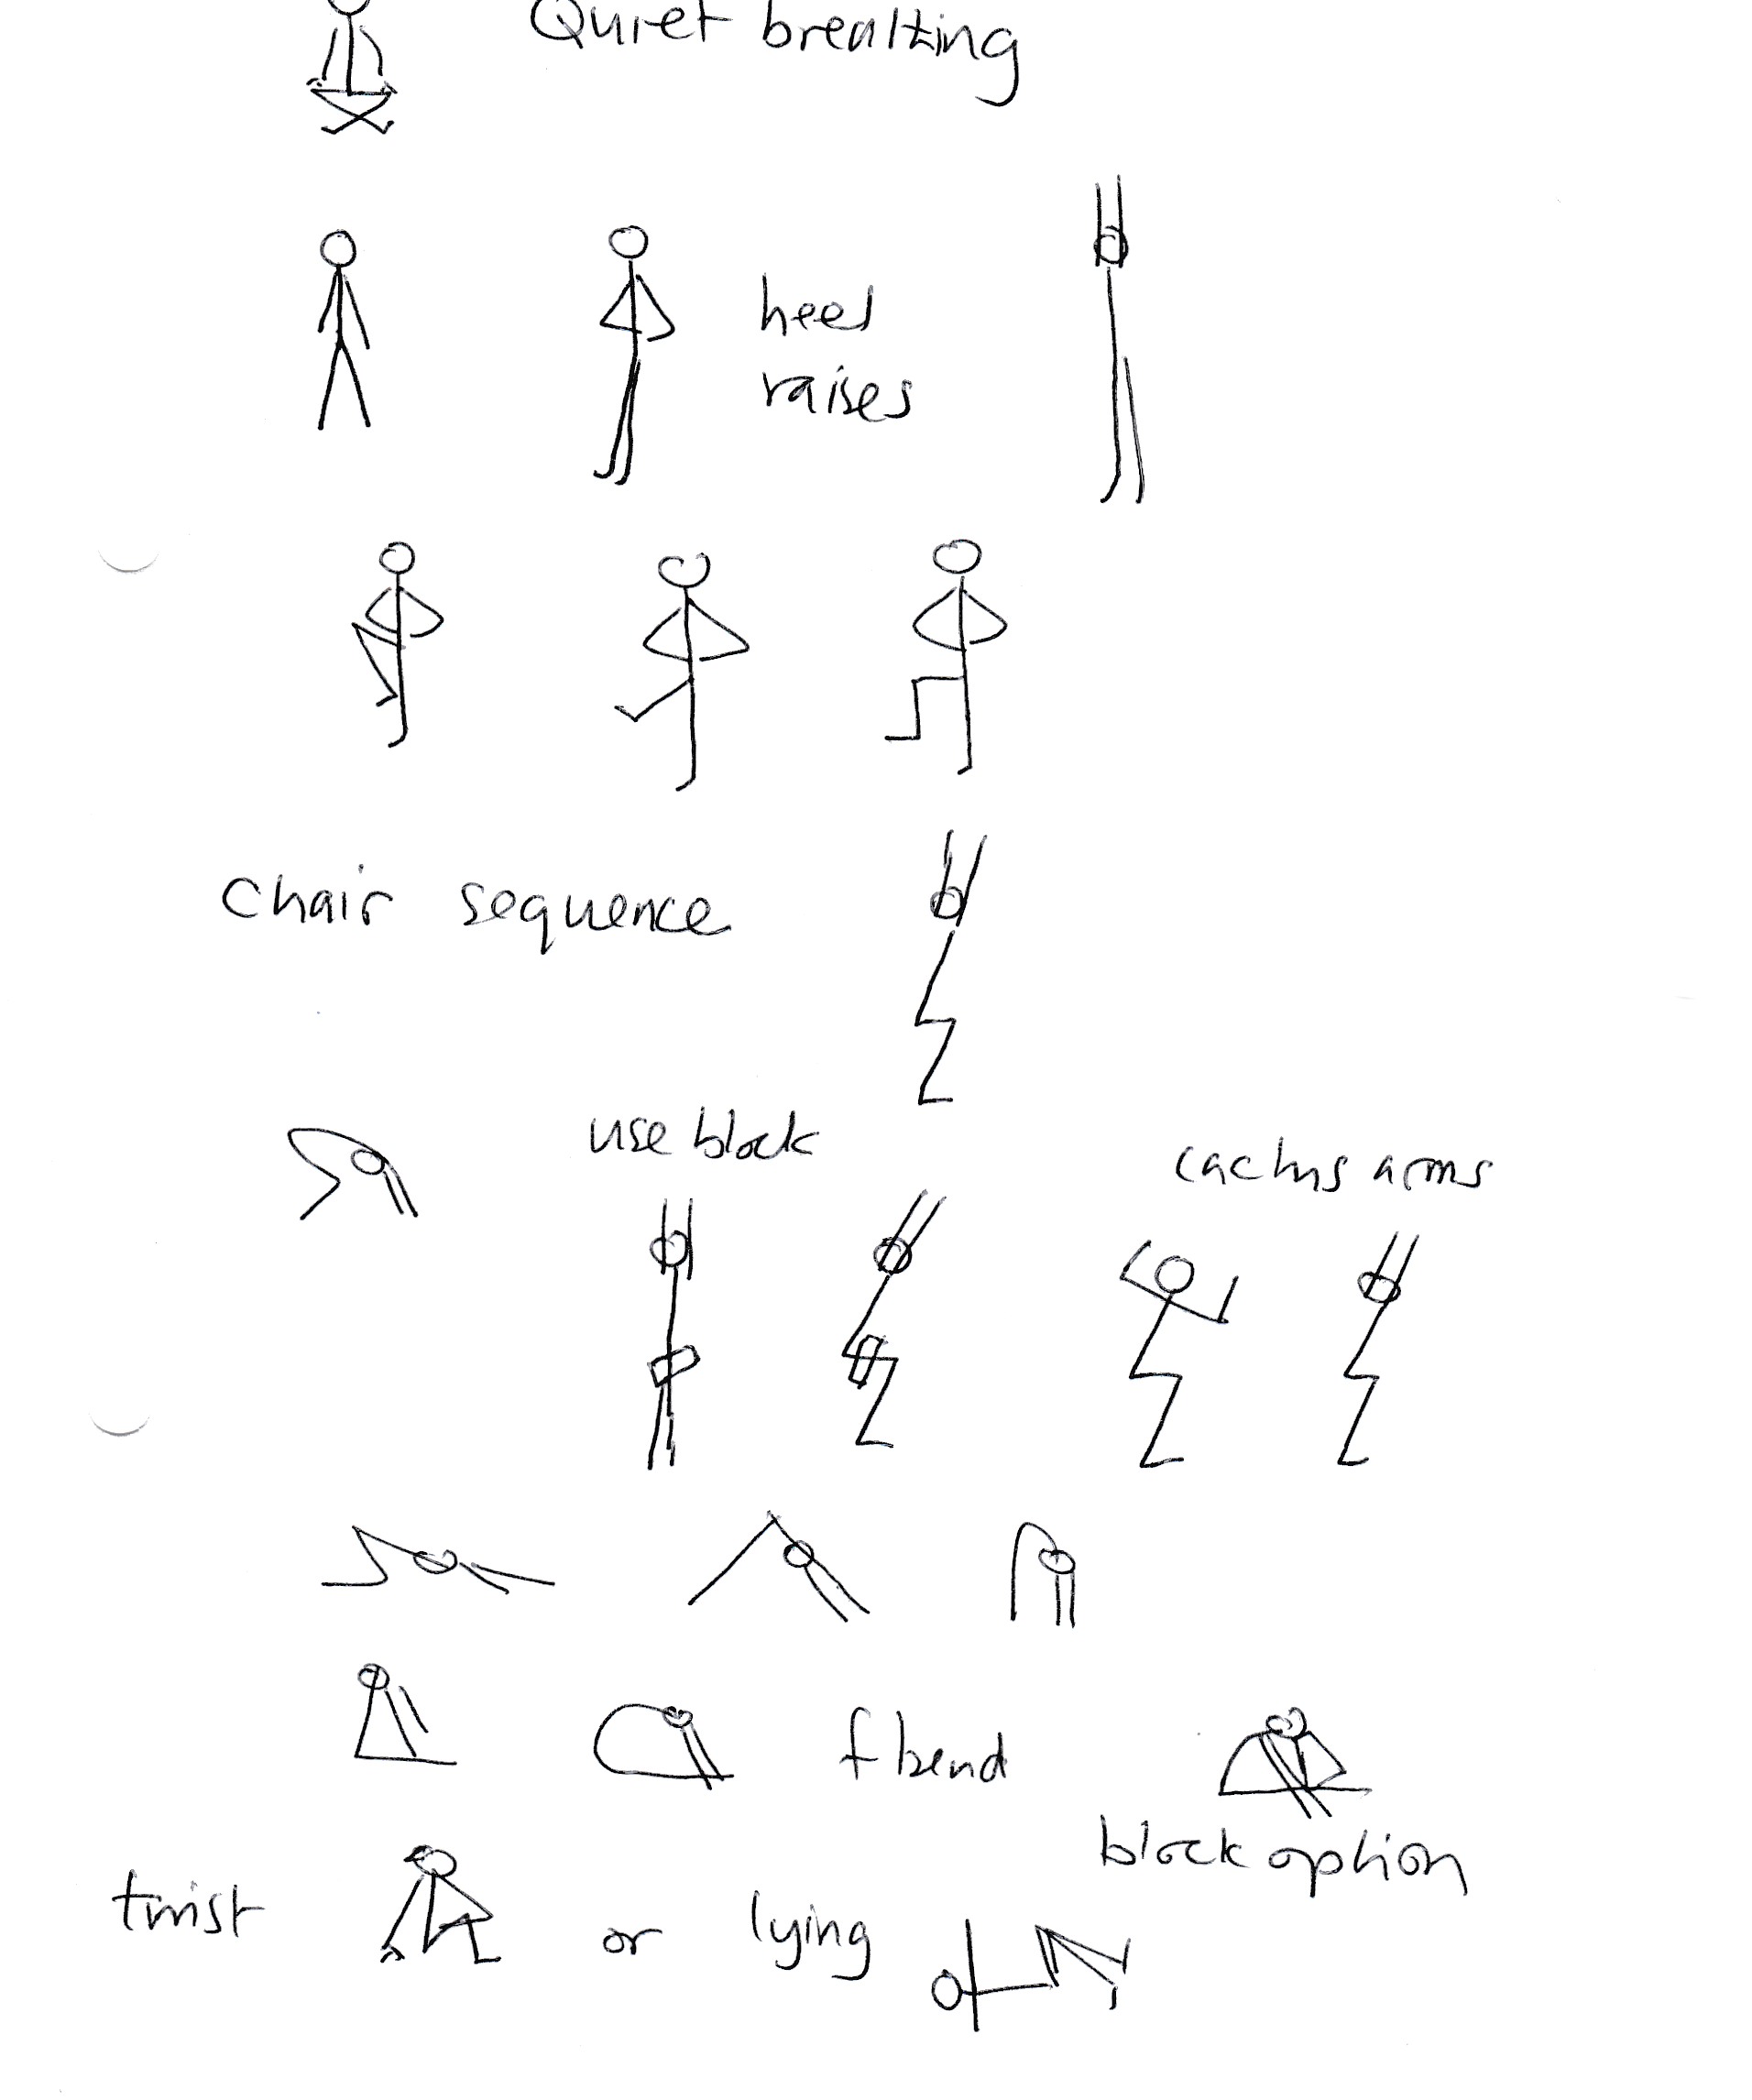 Quiet breathing
heel
raises
Chair sequence
use block
cactus arms
f bend
block option
twist
or
lying